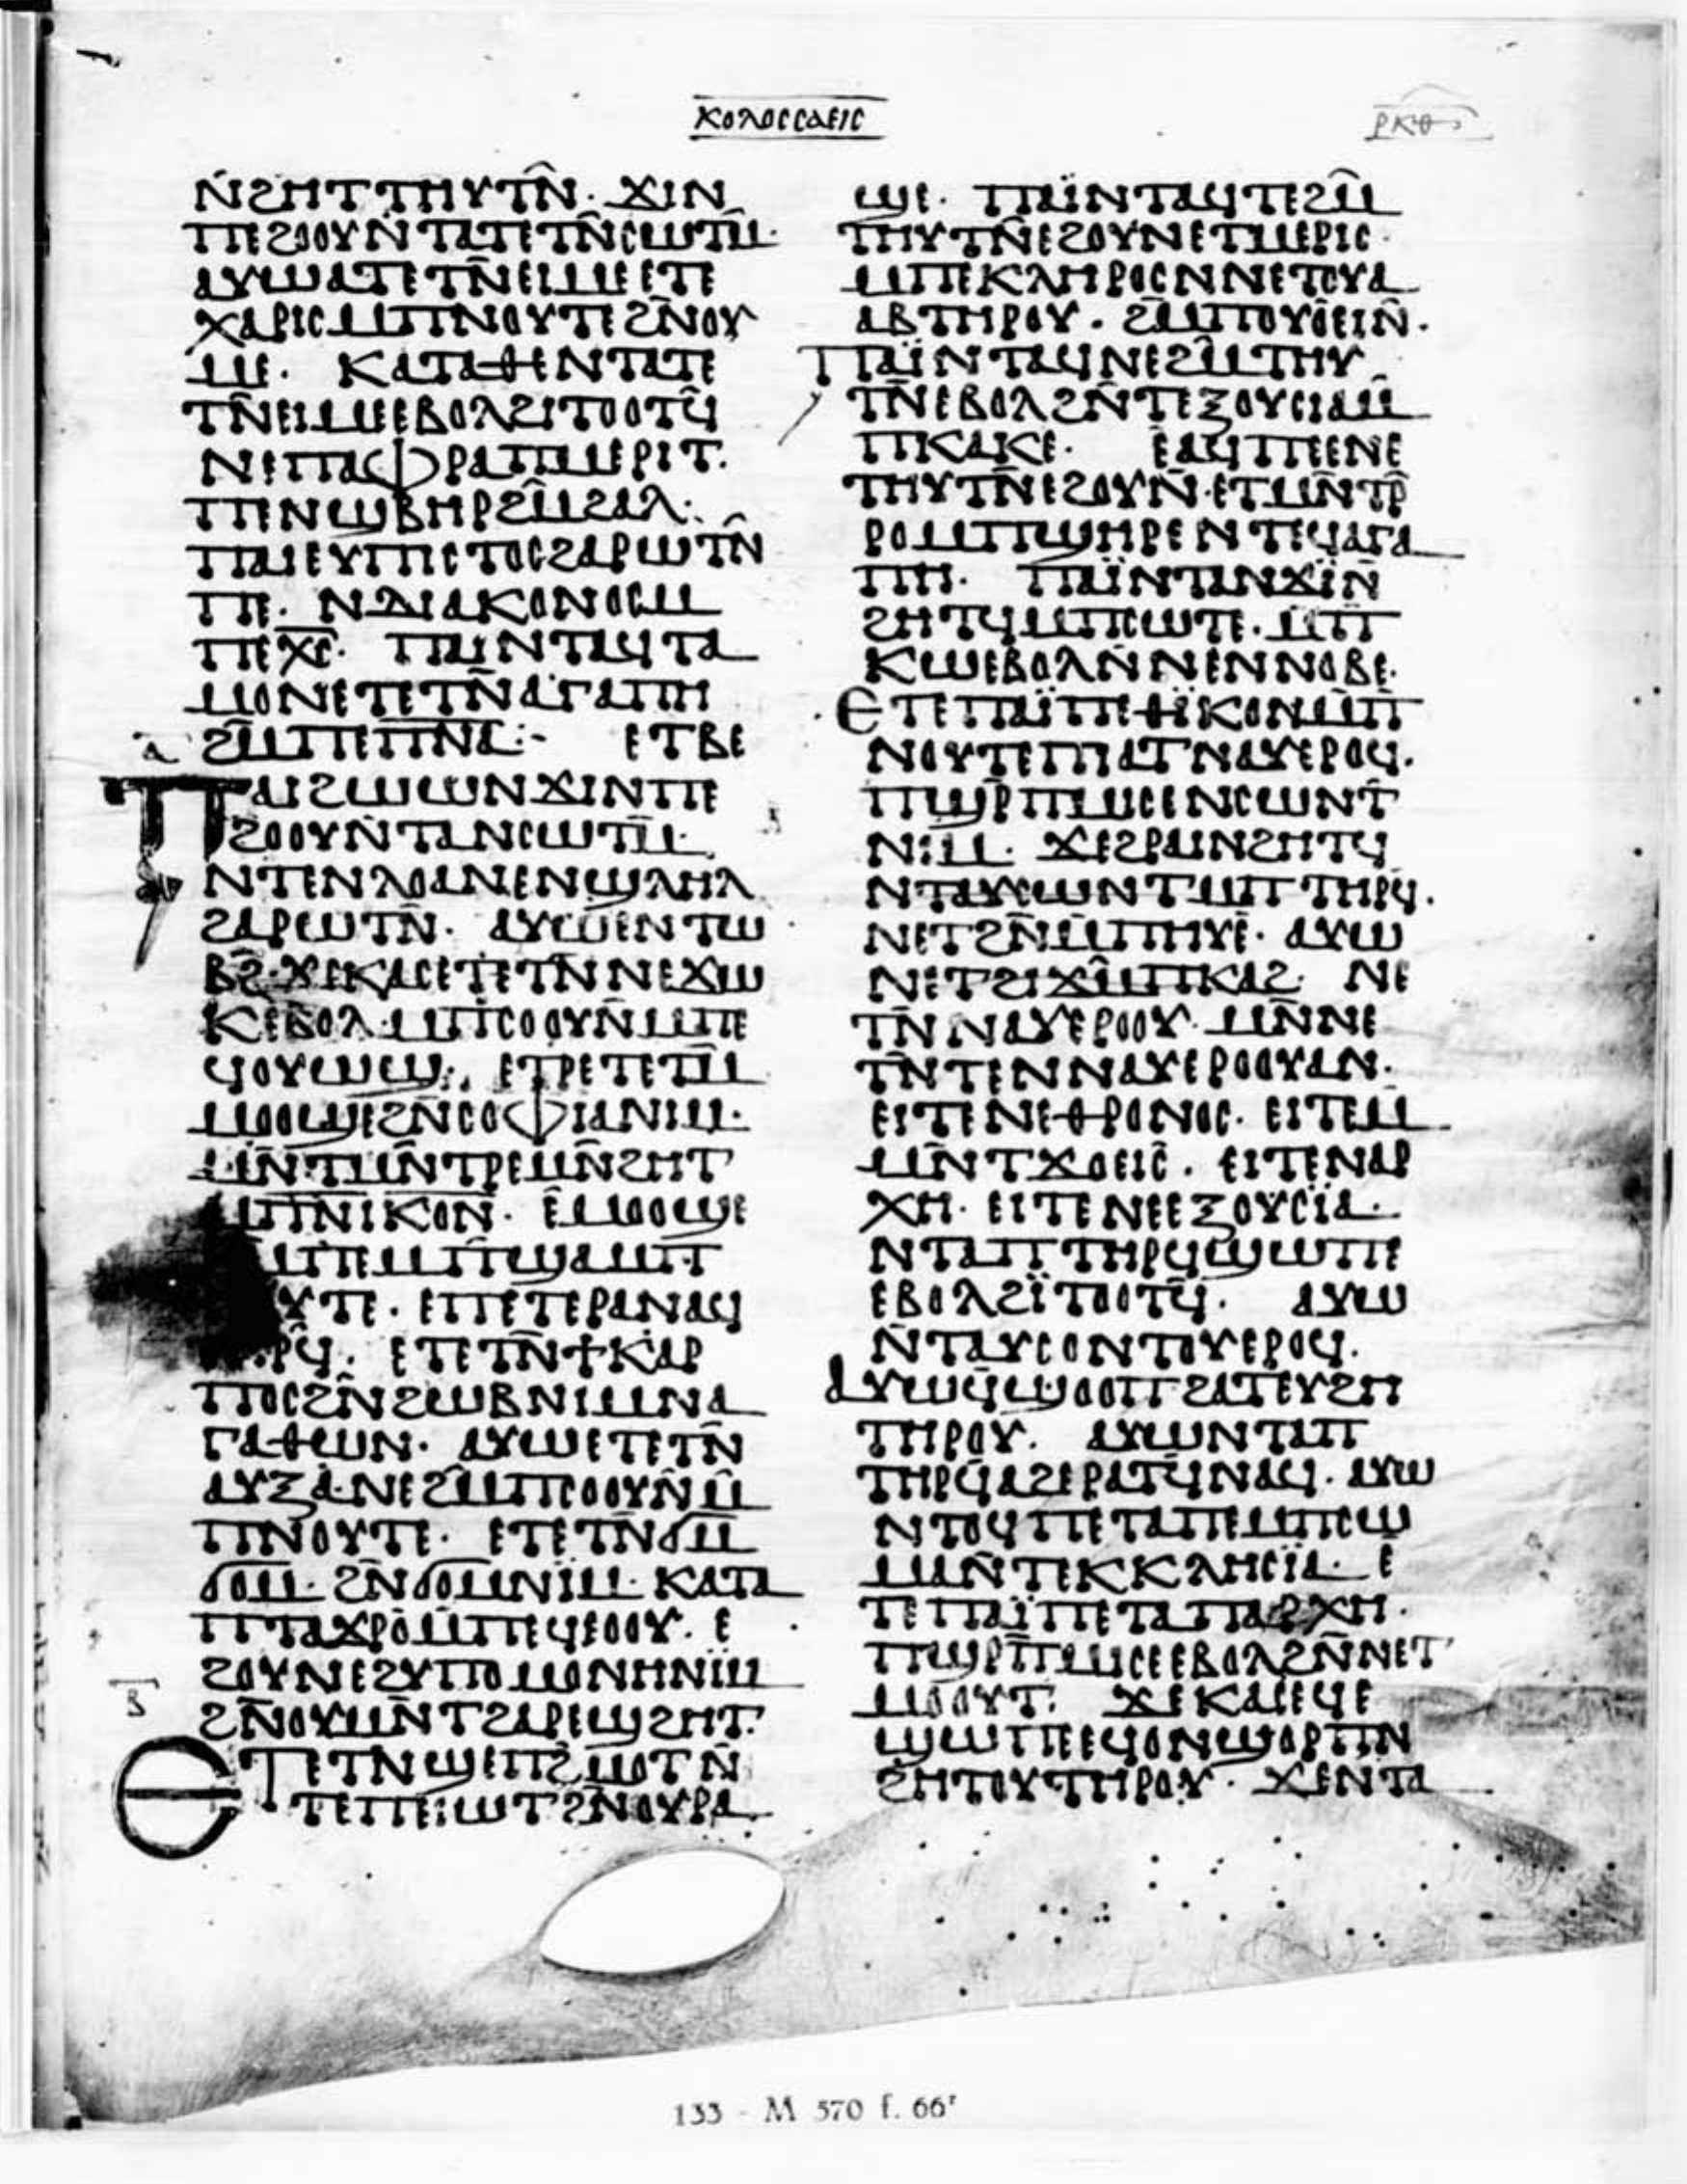 ⲕⲟⲗⲟⲥⲥⲁⲉⲓⲥ
ⲣⲕⲑ
ⲛ̇ϩⲏⲧⲧⲏⲩⲧⲛ̂· ϫⲓⲛ
ⲡⲉϩⲟⲟⲩⲛ̇ⲧⲁⲧⲉⲧⲛ̄ⲥⲱⲧⲙ̄·
ⲁⲩⲱⲁⲧⲉⲧⲛ̄ⲉⲓⲙⲉⲉⲧⲉ
ⲭⲁⲣⲓⲥⲙ̄ⲡⲛⲟⲩⲧⲉϩⲛ̄ⲟⲩ
ⲙⲉ· ⲕⲁⲧⲁⲑⲉⲛⲧⲁⲧⲉ
ⲧⲛ̄ⲉⲓⲙⲉⲉⲃⲟⲗϩⲓⲧⲟⲟⲧϥ̄
ⲛⲉⲡⲁⲫⲣⲁⲡⲙⲉⲣⲓⲧ·
ⲡⲉⲛϣⲃⲏⲣϩⲙ̂ϩⲁⲗ·
ⲡⲁⲓⲉⲩⲡⲓⲥⲧⲟⲥϩⲁⲣⲱⲧⲛ̂
ⲡⲉ· ⲛⲇⲓⲁⲕⲟⲛⲟⲥⲙ
ⲡⲉⲭ̄ⲥ̄· ⲡⲁⲓⲛⲧⲁϥⲧⲁ
ⲙⲟⲛⲉⲧⲉⲧⲛ̄ⲁⲅⲁⲡⲏ
ⲁ ϩⲙ̄ⲡⲉⲡ̄ⲛ̄ⲁ̄:- ⲉⲧⲃⲉ
ⲡⲁⲓϩⲱⲱⲛϫⲓⲛⲡⲉ
ϩⲟⲟⲩⲛ̇ⲧⲁⲛⲥⲱⲧⲙ̄·
ⲛⲧⲉⲛⲗⲟⲁⲛⲉⲛϣⲗⲏⲗ
ϩⲁⲣⲱⲧⲛ̄· ⲁⲩⲱⲉⲛⲧⲱ
ⲃϩ̄·ϫⲉⲕⲁⲥⲉⲧⲉⲧⲛ̄ⲛⲉϫⲱ
ⲕⲉⲃⲟⲗ·ⲙ̄ⲡⲥⲟⲟⲩⲛ̇ⲙ̄ⲡⲉ
ϥⲟⲩⲱϣ·, ⲉⲧⲣⲉⲧⲉⲧⲙ̄
ⲙⲟⲟϣⲉϩⲛ̄ⲥⲟⲫⲓⲁⲛⲓⲙ·
ⲙⲛ̄ⲧⲙⲛ̄ⲧⲣⲉⲙⲛ̄ϩⲏⲧ
ⲙ̄ⲡ̄ⲛ̄ⲓⲕⲟⲛ· ⲉⲙⲟⲟϣⲉ
ⲙ̄ⲡⲉⲙⲡϣⲁⲙⲡ
ⲩⲧⲉ· ⲉⲡⲉⲧⲉⲣⲁⲛⲁϥ
ⲣϥ̄· ⲉⲧⲉⲧⲛ̄ϯⲕⲁⲣ
ⲡⲟⲥϩⲛ̂ϩⲱⲃⲛⲓⲙⲛⲁ
ⲅⲁⲑⲱⲛ· ⲁⲩⲱⲉⲧⲉⲧⲛ̄
ⲁⲩⲝⲁⲛⲉϩⲙ̂ⲡⲥⲟⲟⲩⲛ̂ⲙ̂
ⲡⲛⲟⲩⲧⲉ· ⲉⲧⲉⲧⲛ̄ϭⲙ̄
ϭⲟⲙ· ϩⲛ̄ϭⲟⲙⲛⲓⲙ· ⲕⲁⲧⲁ
ⲡⲧⲁϫⲣⲟⲙ̄ⲡⲉϥⲉⲟⲟⲩ· ⲉ
ϩⲟⲩⲛⲉϩⲩⲡⲟⲙⲟⲛⲏⲛⲓⲙ
ⲃ̄ ϩⲛ̄ⲟⲩⲙⲛ̄ⲧϩⲁⲣϣϩⲏⲧ·
ⲉⲧⲉⲧⲛϣⲉⲡϩ̄ⲙⲟⲧⲛ̄
ⲧⲉⲡⲉⲓⲱⲧϩⲛ̄ⲟⲩⲣⲁ
ϣⲉ· ⲡⲁⲓ̈ⲛⲧⲁϥⲧⲉϩⲙ̂
ⲧⲏⲩⲧⲛ̄ⲉϩⲟⲩⲛⲉⲧⲙⲉⲣⲓⲥ·
ⲙⲡⲉⲕⲗⲏⲣⲟⲥⲛⲛⲉⲧⲟⲩⲁ
ⲁⲃⲧⲏⲣⲟⲩ· ϩⲙ̄ⲡⲟⲩⲟ̄ⲉⲓⲛ̂·
ⲡⲁⲓ̈ⲛⲧⲁϥⲛⲉϩⲙ̂ⲧⲏⲩ
ⲧⲛ̄ⲉⲃⲟⲗϩⲛ̄ⲧⲉⲝⲟⲩⲥⲓⲁⲙ̂
ⲡⲕⲁⲕⲉ· ⲉⲁϥⲡⲉⲉⲛⲉ
ⲧⲏⲩⲧⲛ̄ⲉϩⲟⲩⲛ̇·ⲉⲧⲙⲛ̄ⲧⲣ̂
ⲣⲟⲙⲡϣⲏⲣⲉⲛⲧⲉϥⲁⲅⲁ
ⲡⲏ· ⲡⲁⲓ̈ⲛⲧⲁⲛϫⲓ̈ⲛ̄
ϩⲏⲧϥⲙ̄ⲡⲥⲱⲧⲉ· ⲙ̄ⲡ
ⲕⲱⲉⲃⲟⲗⲛ̇ⲛⲉⲛⲛⲟⲃⲉ·
ⲉⲧⲉⲡⲁⲓ̈ⲡⲉⲑⲓ̈ⲕⲱⲛⲙ̄ⲡ
ⲛⲟⲩⲧⲉⲡⲓⲁⲧⲛⲁⲩⲉⲣⲟϥ·
ⲡϣⲣ̄ⲡⲙ̄ⲙⲓⲥⲉⲛⲥⲱⲛⲧ
ⲛⲓⲙ· ϫⲉϩⲣⲁⲓⲛϩⲏⲧϥ
ⲛⲧⲁⲩⲥⲱⲛⲧⲙⲡⲧⲏⲣϥ·
ⲛⲉⲧϩⲛ̄ⲙ̄ⲡⲏⲩⲉ· ⲁⲩⲱ
ⲛⲉⲧϩⲓϫⲙ̂ⲡⲕⲁϩ· ⲛⲉ
ⲧⲛ̄ⲛⲁⲩⲉⲣⲟⲟⲩ· ⲙⲛ̄ⲛⲉ
ⲧⲛ̄ⲧⲉⲛⲛⲁⲩⲉⲣⲟⲟⲩⲁⲛ·
ⲉⲓⲧⲉⲛⲉⲑⲣⲟⲛⲟⲥ· ⲉⲓⲧⲉⲙ
ⲙⲛ̄ⲧϫⲟⲉⲓⲥ̄· ⲉⲓⲧⲉⲛⲁⲣ
ⲭⲏ· ⲉⲓⲧⲉⲛⲉⲉⲝⲟⲩⲥⲓ̈ⲁ·
ⲛⲧⲁⲡⲧⲏⲣϥϣⲱⲡⲉ
ⲉⲃⲟⲗϩⲓ̈ⲧⲟⲟⲧϥ̄· ⲁⲩⲱ
ⲛ̄ⲧⲁⲩⲥⲟⲛⲧⲟⲩⲉⲣⲟϥ·
ⲁⲩⲱϥ̄ϣⲟⲟⲡϩⲁⲧⲉⲩϩⲏ
ⲧⲏⲣⲟⲩ· ⲁⲩⲱⲛⲧⲁⲡ
ⲧⲏⲣϥⲁϩⲉⲣⲁⲧϥⲛⲁϥ· ⲁⲩⲱ
ⲛⲧⲟϥⲡⲉⲧⲁⲡⲉⲙⲡⲥⲱ
ⲙⲁⲛ̄ⲧⲉⲕⲕⲗⲏⲥⲓ̈ⲁ· ⲉ
ⲧⲉⲡⲁⲓ̈ⲡⲉⲧⲁⲡⲁⲣⲭⲏ·
ⲡϣⲣ̄ⲡⲙ̄ⲙⲓⲥⲉⲉⲃⲟⲗϩⲛ̄ⲛⲉⲧ
ⲙⲟⲟⲩⲧ· ϫⲉⲕⲁⲥⲉϥⲉ
ϣⲱⲡⲉⲉϥⲟⲛϣⲟⲣⲡⲛ
ϩⲏⲧⲟⲩⲧⲏⲣⲟⲩ· ϫⲉⲛⲧⲁ
133 - M 570 f. 66ʳ